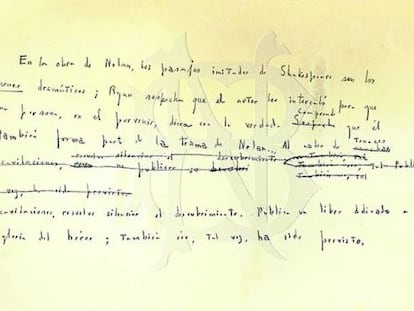 En la obra de Nolan, los pasajes imitados de Shakespeare son los
menos dramáticos; Ryan sospecha que el autor los intercaló para que
una persona, en el porvenir, diera con la verdad. Comprende Sospecha que él
también forma parte de la trama de Nolan... Al cabo de Tenaces muchas
cavilaciones, resuelve silenciar el descubrimiento no publicar su Publi
vez, ha sido previsto
cavilaciones, resuelve silenciar el descubrimiento. Publica un libro dedicado a
gloria del héroe; también eso, tal vez, ha sido previsto.